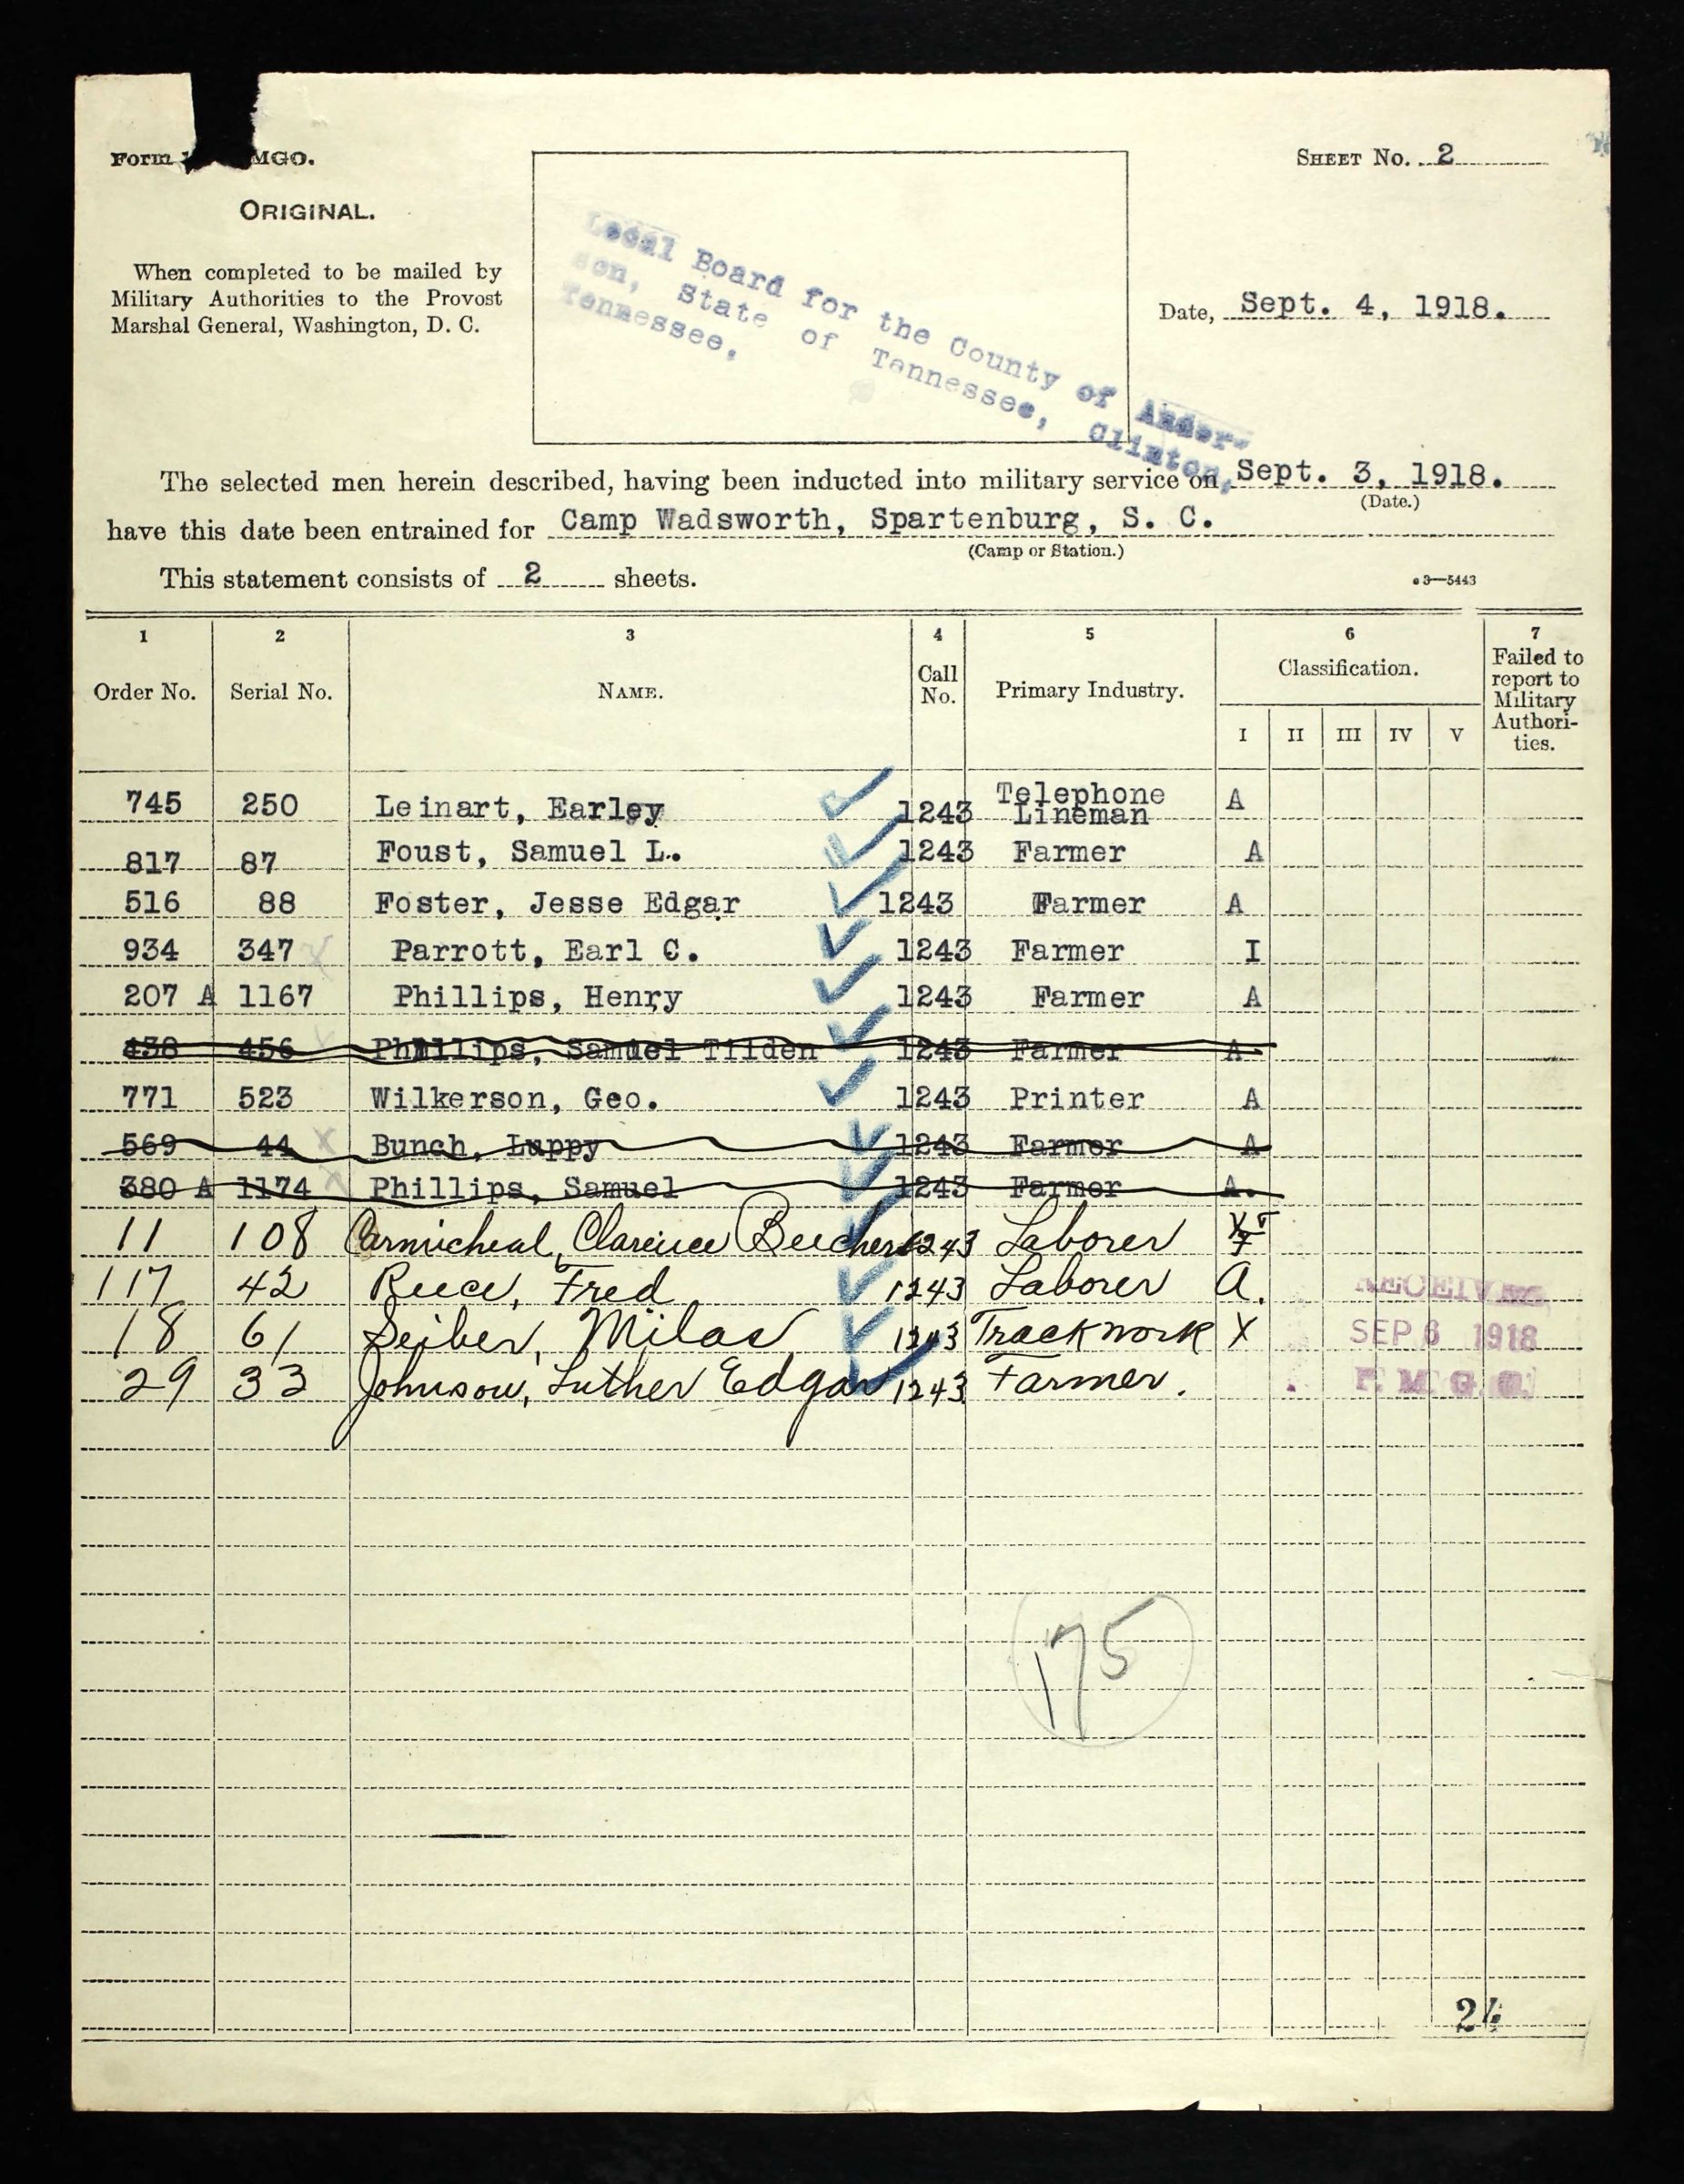 Form MGO.
SHEET No. 2
ORIGINAL.
When completed to be mailed by
Military Authorities to the Provost
Marshal General, Washington, D. C.
Local Board for the County of Ander-
son, State of Tennessee, Clinton,
Tennessee.
Date, Sept. 4, 1918.
The selected men herein described, having been inducted into military service on Sept. 3, 1918.
(Date.)
have this date been entrained for Camp Wadsworth, Spartenburg, S. C.
(Camp or Station.)
This statement consists of 2 sheets.
3—5443
1 2 3 4 5 6 7
Order No. Serial No. NAME. Call No. Primary Industry. Classification. Failed to report to Military Authori- ties.
I II III IV V
745 250 Leinart, Earley 1243 Telephone Lineman A
817 87 Foust, Samuel L. 1243 Farmer A
516 88 Foster, Jesse Edgar 1243 Farmer A
934 347 Parrott, Earl C. 1243 Farmer I
207 A 1167 Phillips, Henry 1243 Farmer A
438 456 Phillips, Samuel Tilden 1243 Farmer A
771 523 Wilkerson, Geo. 1243 Printer A
569 44 Bunch, Luppy 1243 Farmer A
380 A 1174 Phillips, Samuel 1243 Farmer A.
11 108 Carmicheal, Clarence Beecher 1243 Laborer
117 42 Reece, Fred 1243 Laborer A.
18 61 Seiber, Milas 1243 Trackwork X
29 33 Johnson, Luther Edgar 1243 Farmer.
RECEIVED
SEP 6 1918
P. M. G. O.
175